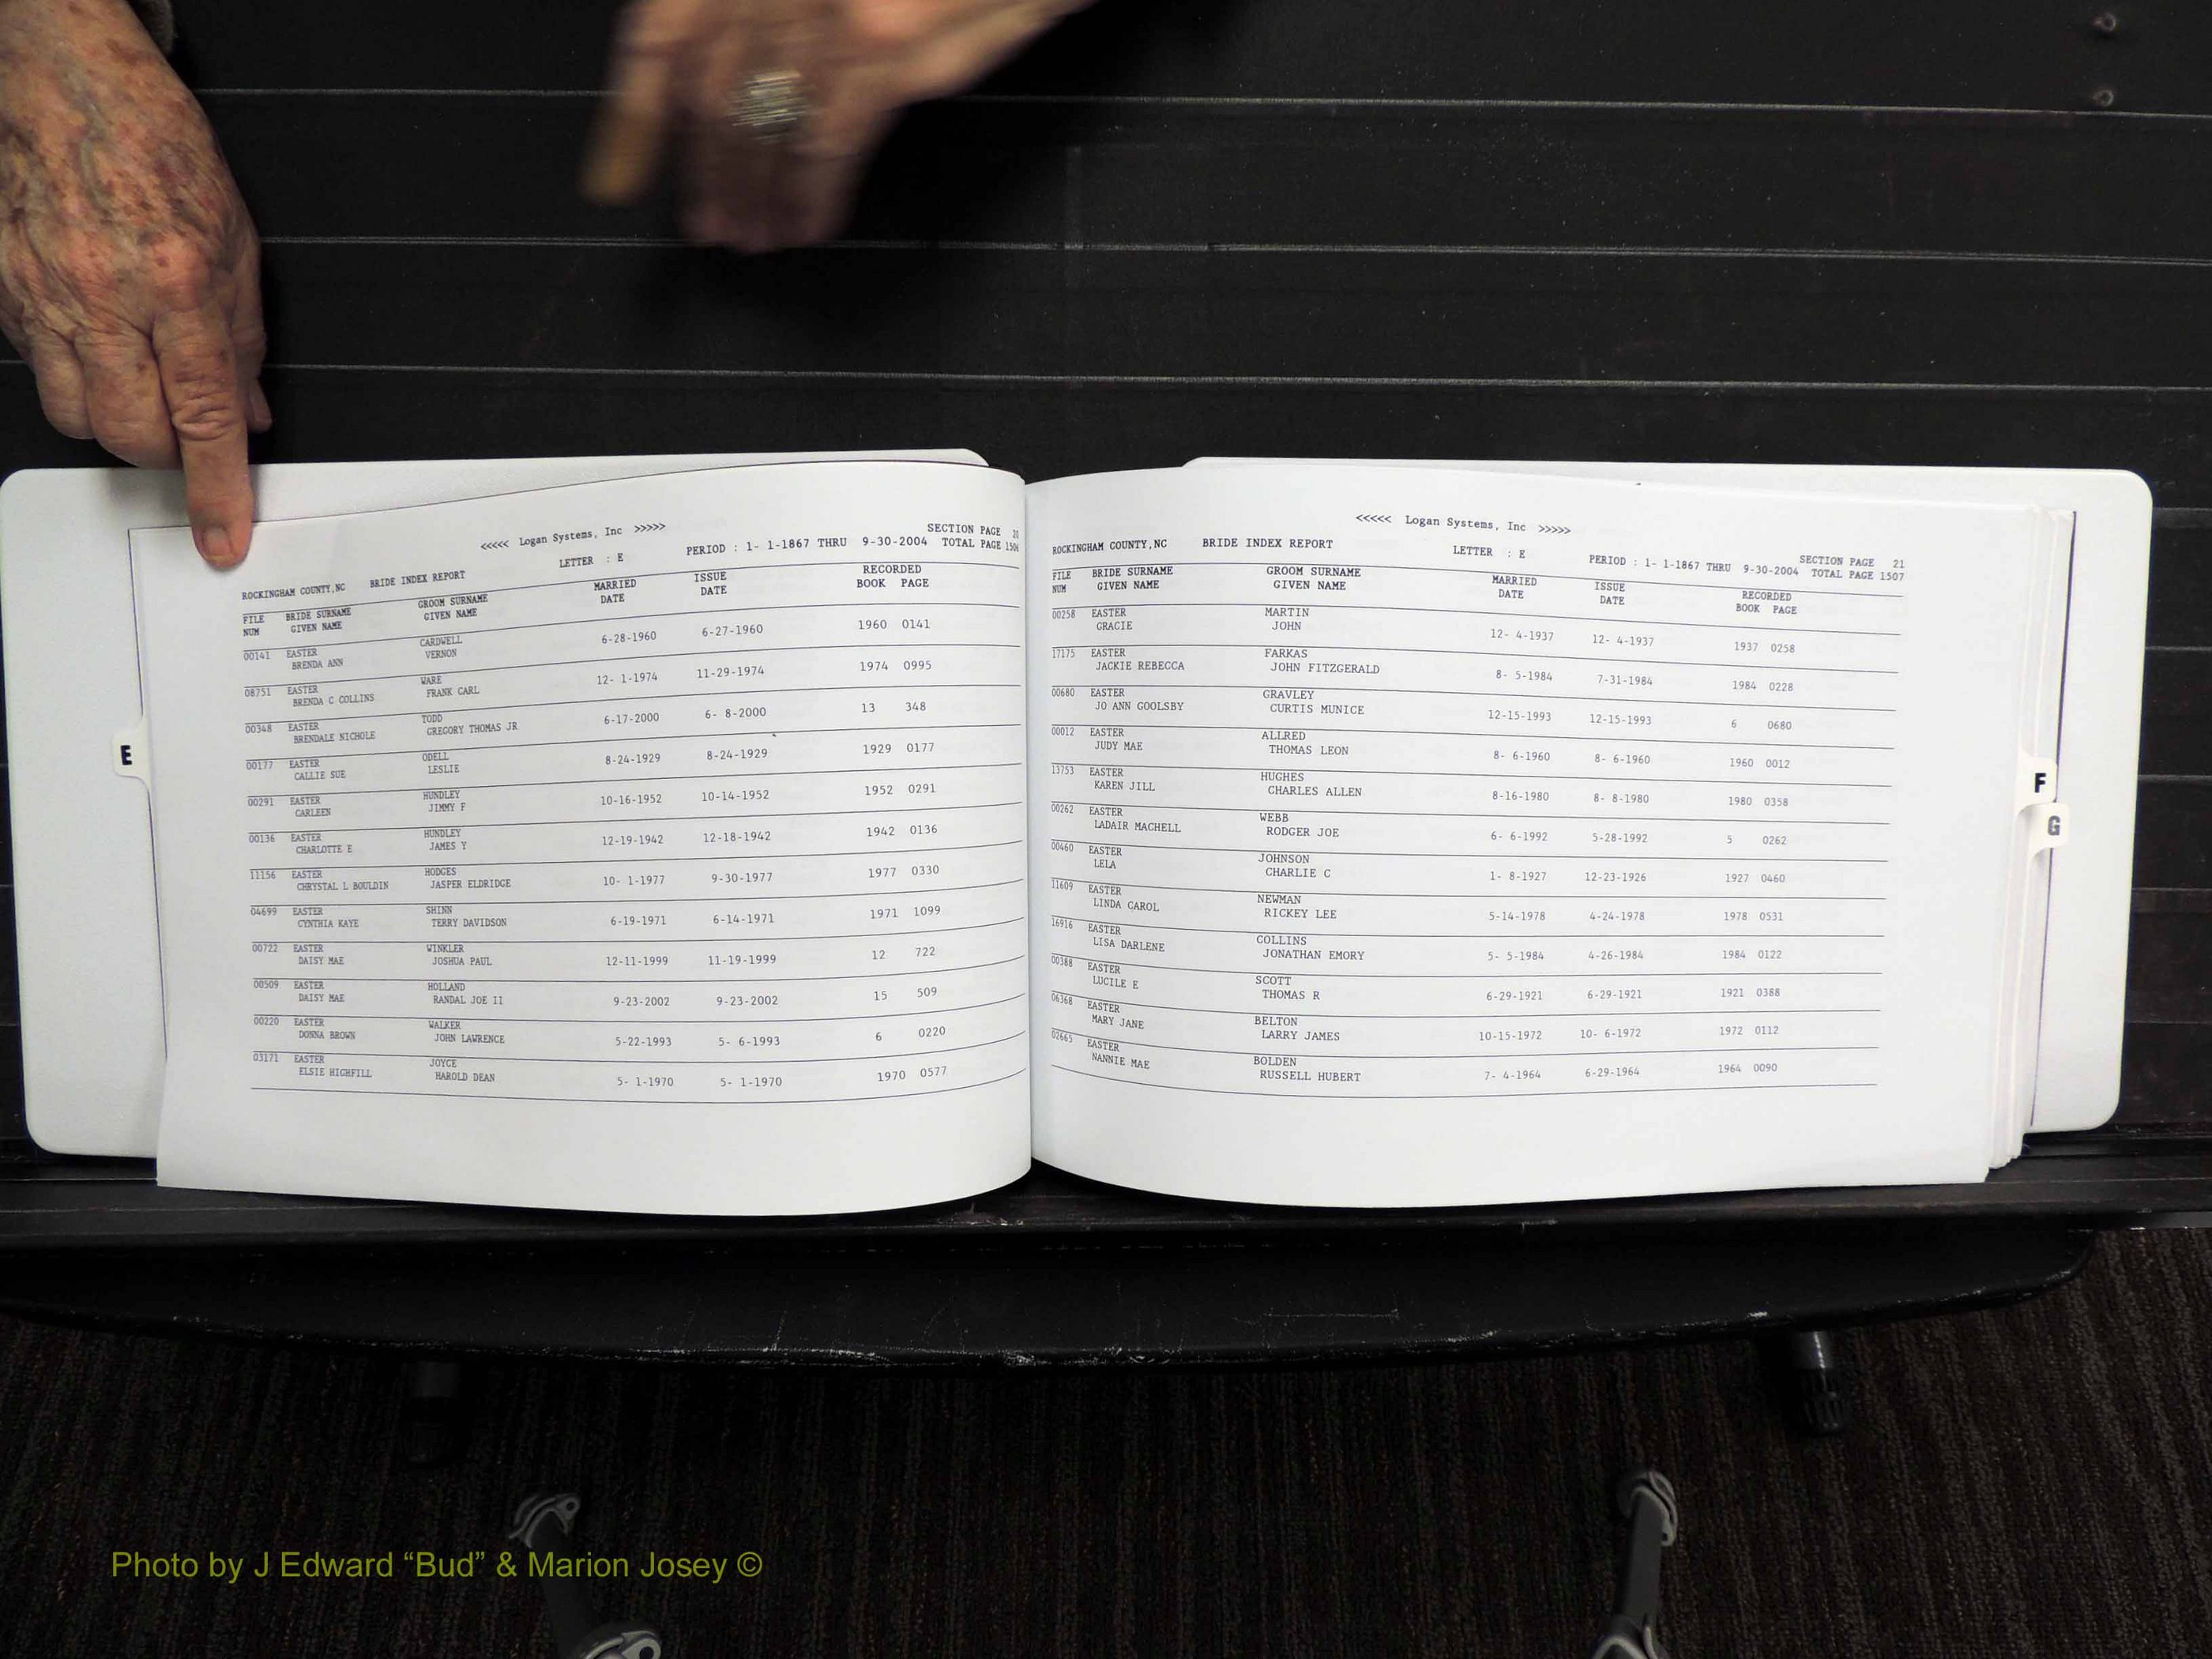 <<<<< Logan Systems, Inc >>>>>
SECTION PAGE 20
ROCKINGHAM COUNTY,NC BRIDE INDEX REPORT LETTER : E PERIOD : 1- 1-1867 THRU 9-30-2004 TOTAL PAGE 1506
FILE BRIDE SURNAME GROOM SURNAME MARRIED ISSUE RECORDED
NUM GIVEN NAME GIVEN NAME DATE DATE BOOK PAGE
00141 EASTER CARDWELL
BRENDA ANN VERNON 6-28-1960 6-27-1960 1960 0141
08751 EASTER WARE
BRENDA C COLLINS FRANK CARL 12- 1-1974 11-29-1974 1974 0995
00348 EASTER TODD
BRENDALE NICHOLE GREGORY THOMAS JR 6-17-2000 6- 8-2000 13 348
00177 EASTER ODELL
CALLIE SUE LESLIE 8-24-1929 8-24-1929 1929 0177
00291 EASTER HUNDLEY
CARLEEN JIMMY F 10-16-1952 10-14-1952 1952 0291
00136 EASTER HUNDLEY
CHARLOTTE E JAMES Y 12-19-1942 12-18-1942 1942 0136
11156 EASTER HODGES
CHRYSTAL L BOULDIN JASPER ELDRIDGE 10- 1-1977 9-30-1977 1977 0330
04699 EASTER SHINN
CYNTHIA KAYE TERRY DAVIDSON 6-19-1971 6-14-1971 1971 1099
00722 EASTER WINKLER
DAISY MAE JOSHUA PAUL 12-11-1999 11-19-1999 12 722
00509 EASTER HOLLAND
DAISY MAE RANDAL JOE II 9-23-2002 9-23-2002 15 509
00220 EASTER WALKER
DONNA BROWN JOHN LAWRENCE 5-22-1993 5- 6-1993 6 0220
03171 EASTER JOYCE
ELSIE HIGHFILL HAROLD DEAN 5- 1-1970 5- 1-1970 1970 0577
E
<<<<< Logan Systems, Inc >>>>>
SECTION PAGE 21
ROCKINGHAM COUNTY,NC BRIDE INDEX REPORT LETTER : E PERIOD : 1- 1-1867 THRU 9-30-2004 TOTAL PAGE 1507
FILE BRIDE SURNAME GROOM SURNAME MARRIED ISSUE RECORDED
NUM GIVEN NAME GIVEN NAME DATE DATE BOOK PAGE
00258 EASTER MARTIN
GRACIE JOHN 12- 4-1937 12- 4-1937 1937 0258
17175 EASTER FARKAS
JACKIE REBECCA JOHN FITZGERALD 8- 5-1984 7-31-1984 1984 0228
00680 EASTER GRAVLEY
JO ANN GOOLSBY CURTIS MUNICE 12-15-1993 12-15-1993 6 0680
00012 EASTER ALLRED
JUDY MAE THOMAS LEON 8- 6-1960 8- 6-1960 1960 0012
13753 EASTER HUGHES
KAREN JILL CHARLES ALLEN 8-16-1980 8- 8-1980 1980 0358
00262 EASTER WEBB
LADAIR MACHELL RODGER JOE 6- 6-1992 5-28-1992 5 0262
00460 EASTER JOHNSON
LELA CHARLIE C 1- 8-1927 12-23-1926 1927 0460
11609 EASTER NEWMAN
LINDA CAROL RICKEY LEE 5-14-1978 4-24-1978 1978 0531
16916 EASTER COLLINS
LISA DARLENE JONATHAN EMORY 5- 5-1984 4-26-1984 1984 0122
00388 EASTER SCOTT
LUCILE E THOMAS R 6-29-1921 6-29-1921 1921 0388
06368 EASTER BELTON
MARY JANE LARRY JAMES 10-15-1972 10- 6-1972 1972 0112
02665 EASTER BOLDEN
NANNIE MAE RUSSELL HUBERT 7- 4-1964 6-29-1964 1964 0090
F
G
Photo by J Edward “Bud” & Marion Josey ©